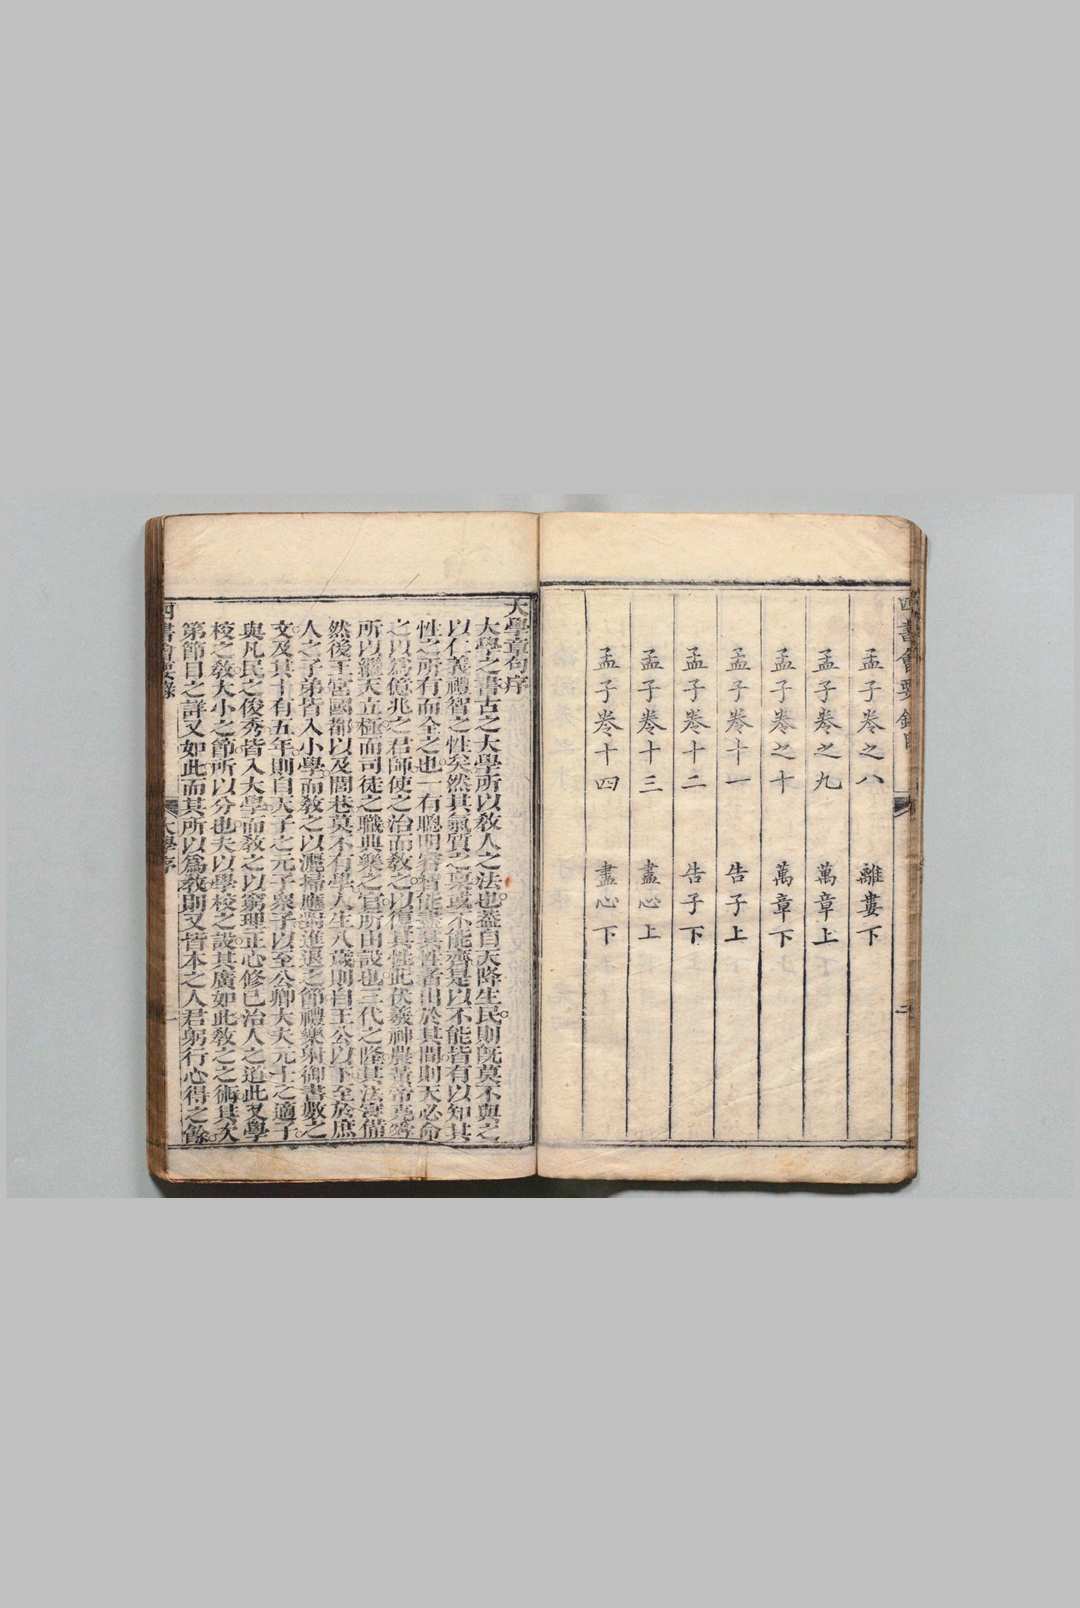 四書會要錄目
孟子卷之八 離婁下
孟子卷之九 萬章上
孟子卷之十 萬章下
孟子卷十一 告子上
孟子卷十二 告子下
孟子卷十三 盡心上
孟子卷十四 盡心下
二
大學章句序
大學之書古之大學所以敎人之法也蓋自天降生民則旣莫不與之
以仁義禮智之性矣然其氣質之稟或不能齊是以不能皆有以知其
性之所有而全之也一有聰明睿智能盡其性者出於其間則天必命
之以爲億兆之君師使之治而敎之以復其性此伏羲神農黃帝堯舜
所以繼天立極而司徒之職典樂之官所由設也三代之隆其法寖備
然後王宮國都以及閭巷莫不有學人生八歲則自王公以下至於庶
人之子弟皆入小學而敎之以灑掃應對進退之節禮樂射御書數之
文及其十有五年則自天子之元子衆子以至公卿大夫元士之適子
與凡民之俊秀皆入大學而敎之以窮理正心修己治人之道此又學
校之敎大小之節所以分也夫以學校之設其廣如此敎之之術其次
第節目之詳又如此而其所以爲敎則又皆本之人君躬行心得之餘
四書會要錄
大學序
一